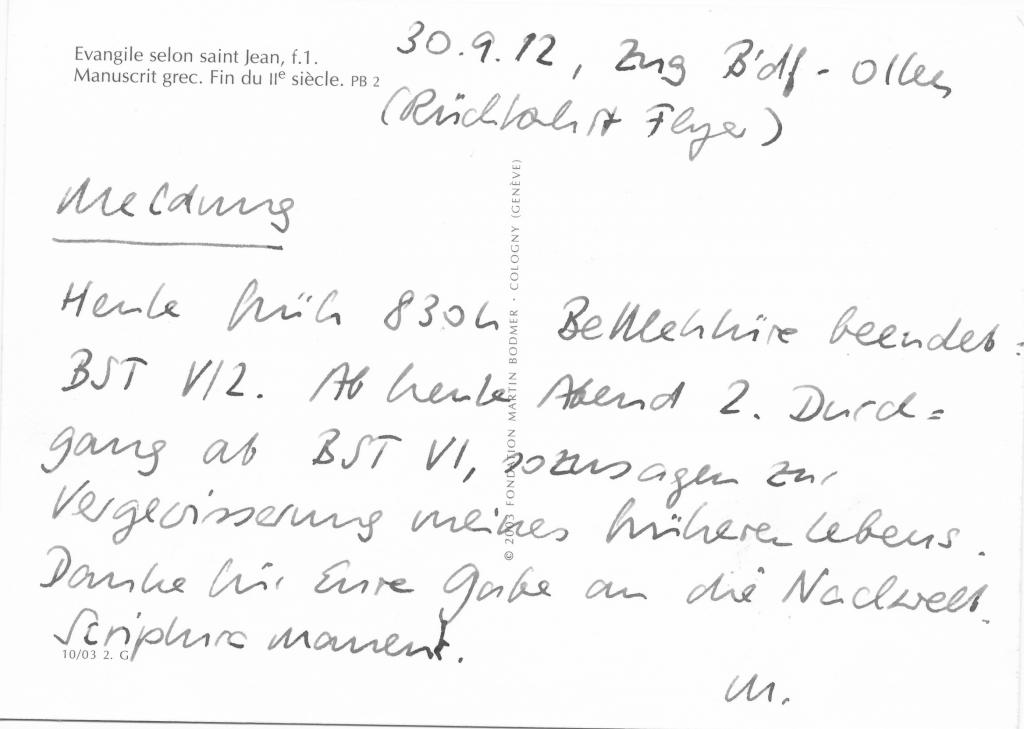 Evangile selon saint Jean, f.1.
Manuscrit grec. Fin du IIe siècle. PB 2
30.9.12, Zug B'df - Olten
(Rückfahrt Flyer)
Meldung
Heute früh 830h Bettlektüre beendet:
BST V/2. Ab heute Abend 2. Durch=
gang ab BST VI, sozusagen zur
Vergewisserung meines früheren Lebens.
Danke für Eure Gabe an die Nachwelt.
Scriptura manent.
M.
10/03 2. G
© 2003 FONDATION MARTIN BODMER · COLOGNY (GENÈVE)